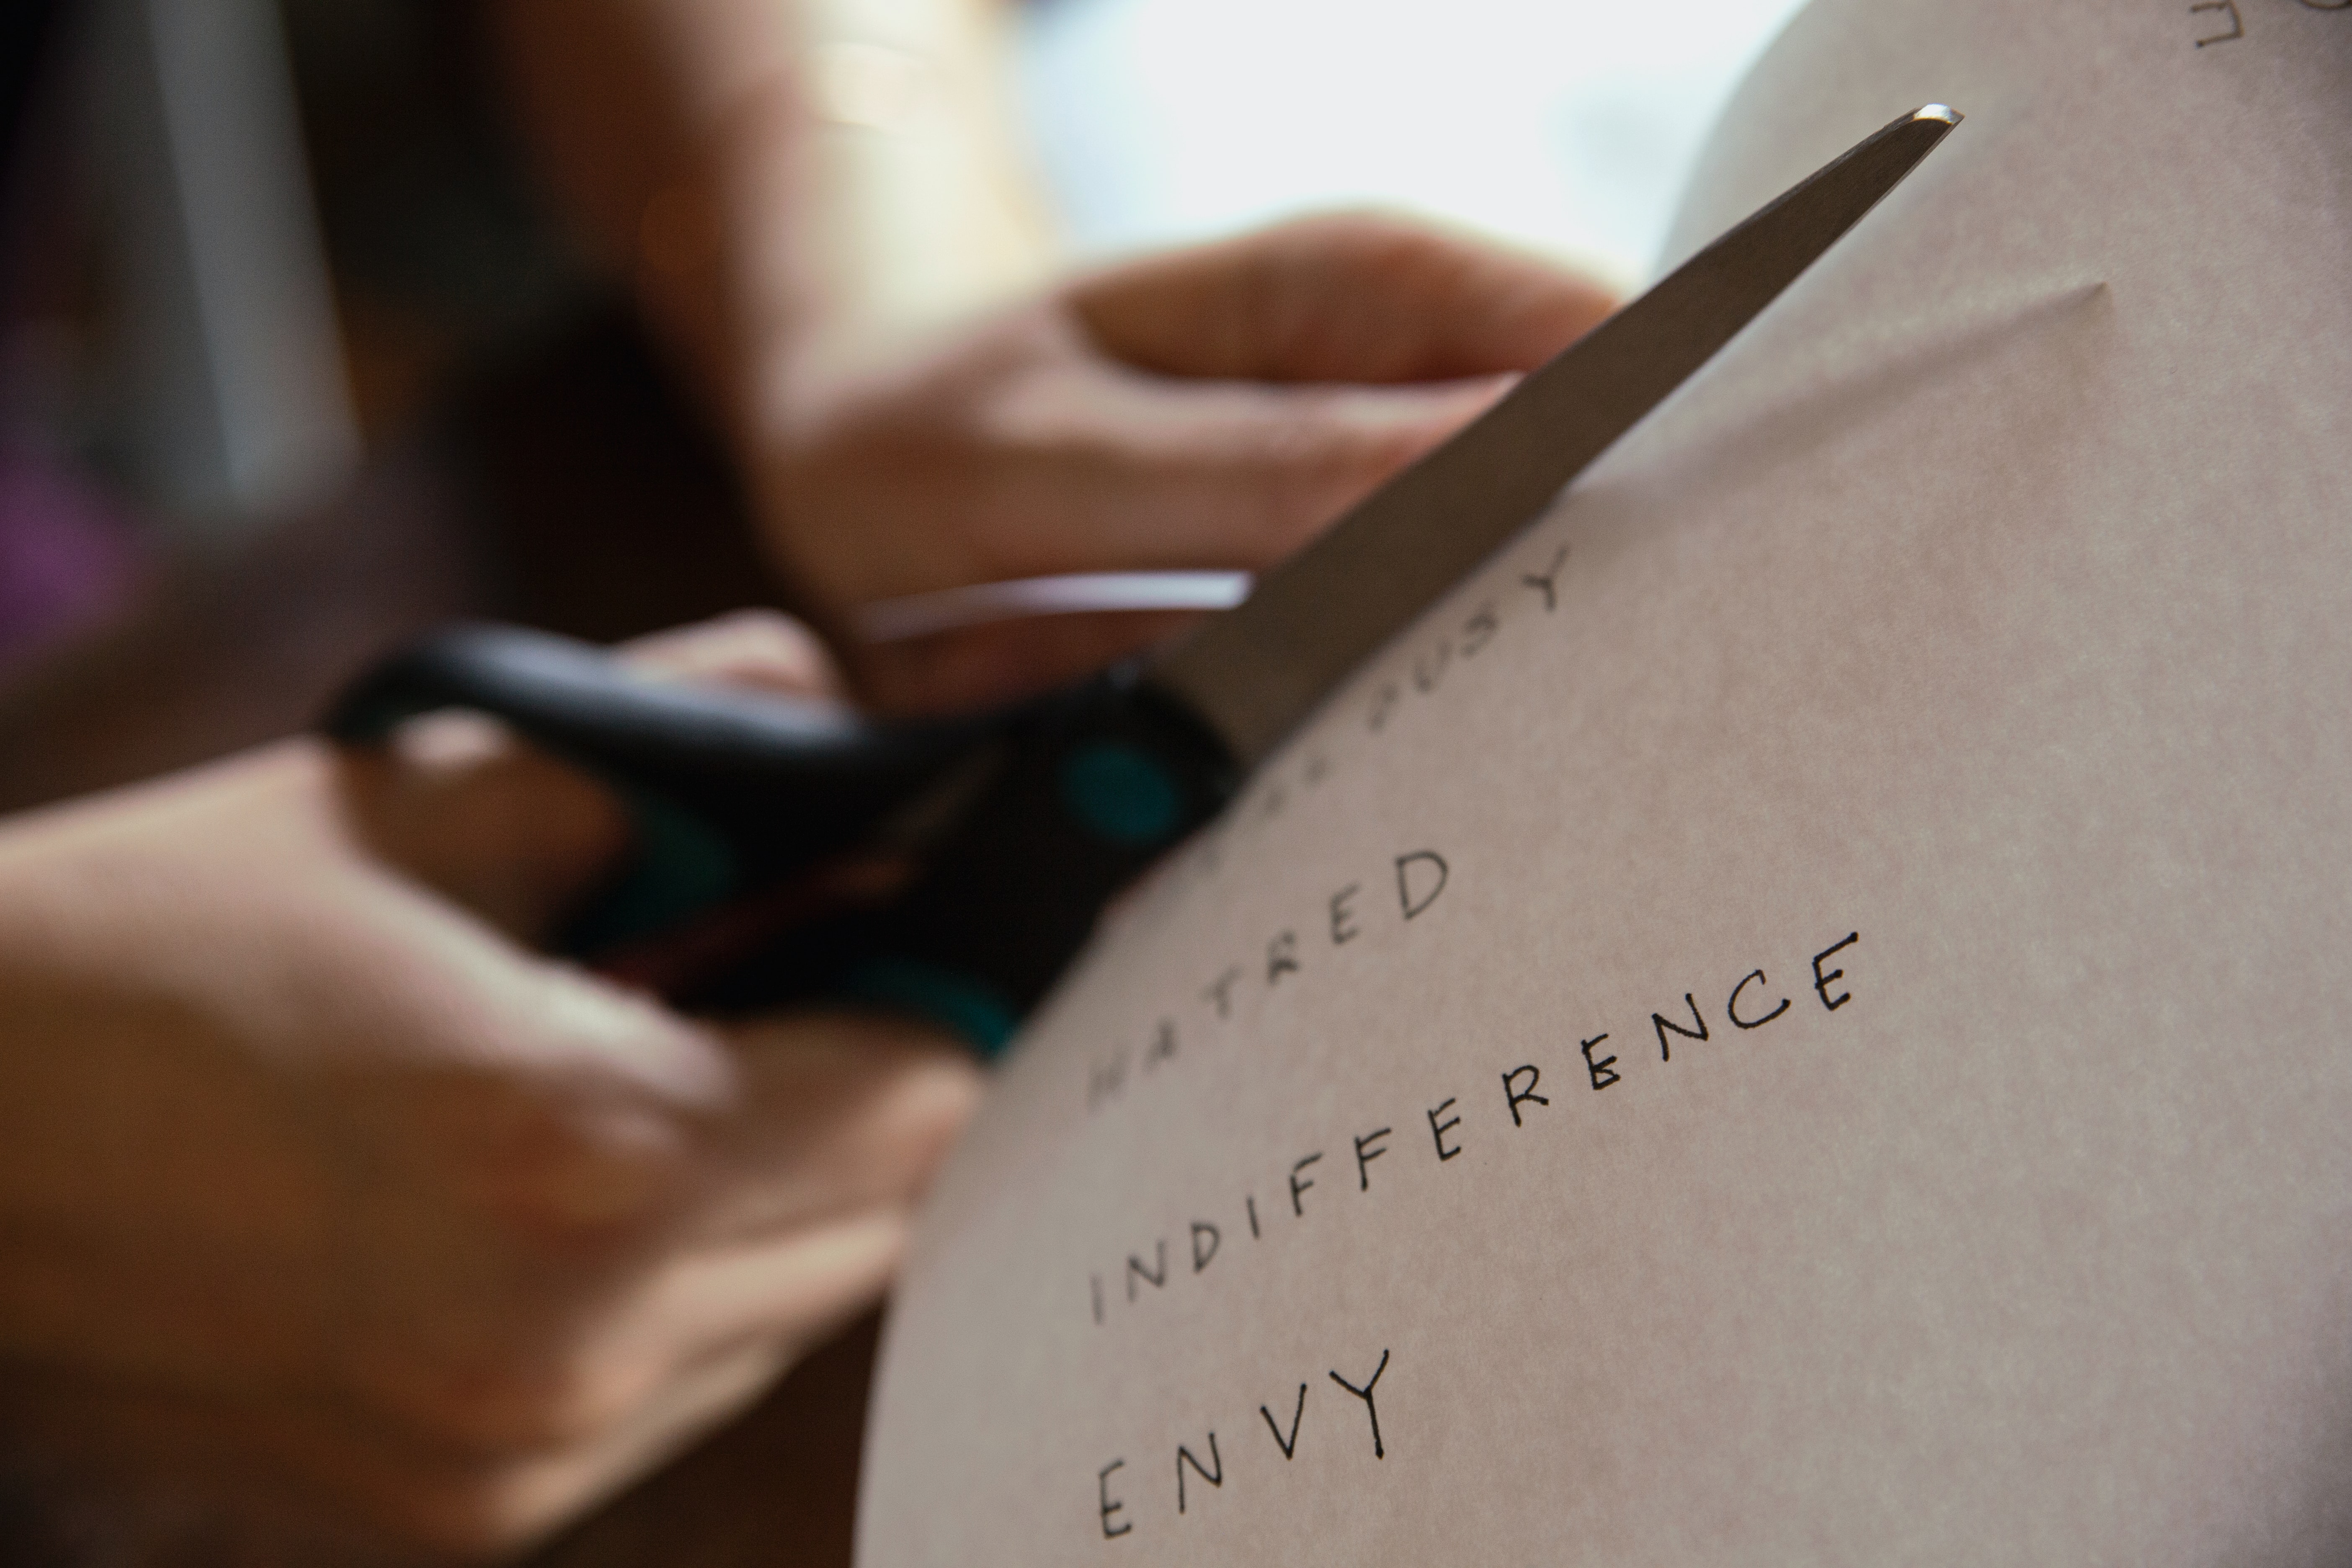 JEALOUSY
HATRED
INDIFFERENCE
ENVY